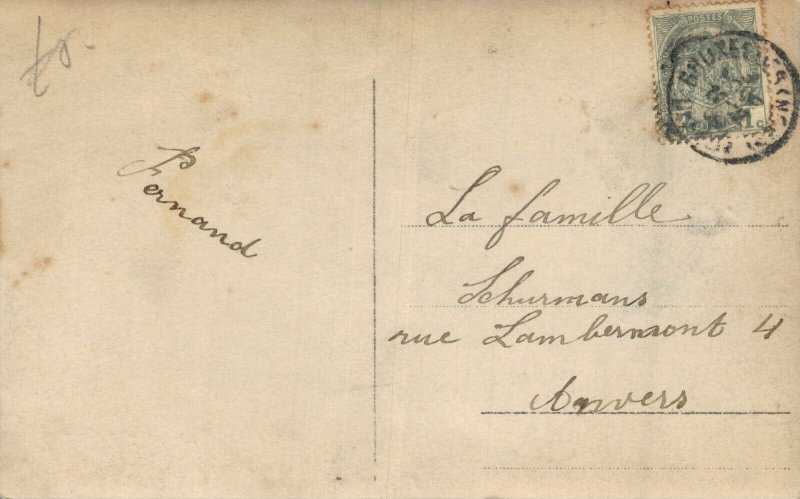 Fernand
POSTES
1c
BRUXELLES
La famille
Schurmans
rue Lambermont 4
Anvers